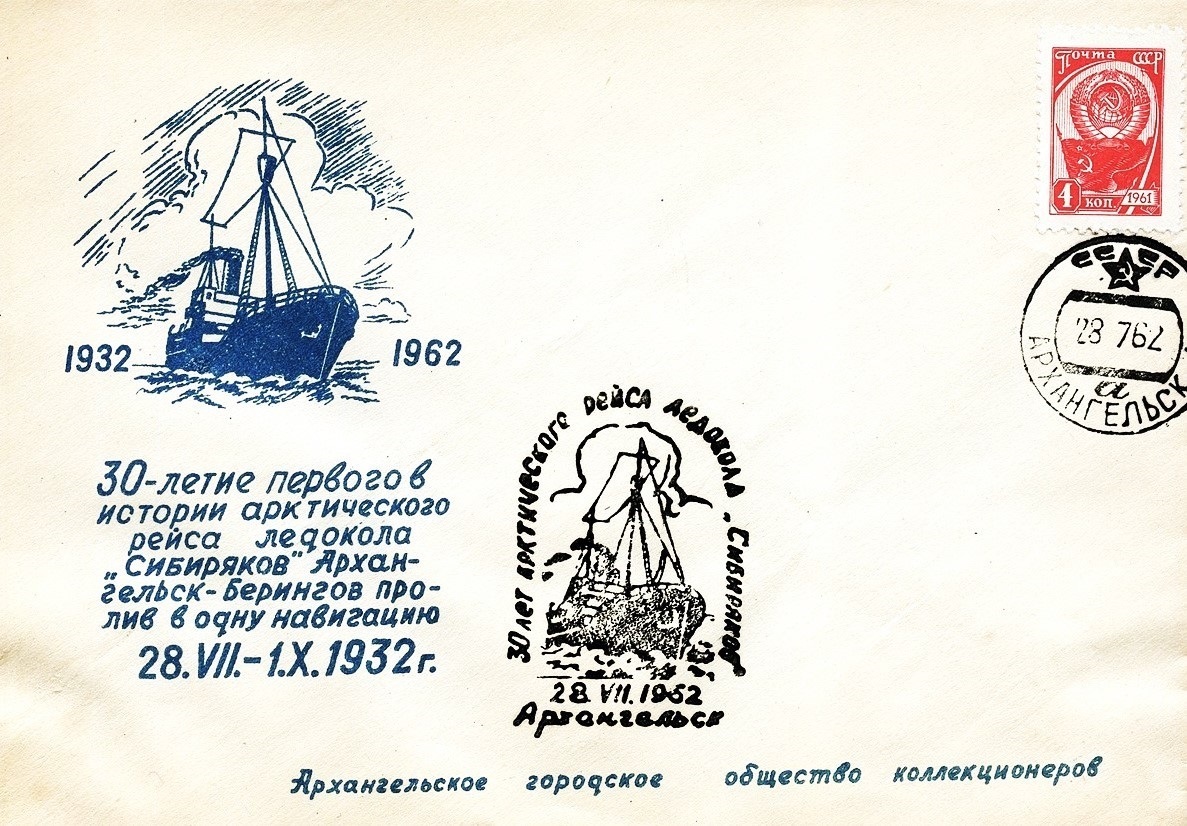 Почта СССР
4 коп. 1961
СССР
28 762
а
АРХАНГЕЛЬСК
1932 1962
30-летие первого в
истории арктического
рейса ледокола
„Сибиряков" Архан-
гельск-Берингов про-
лив в одну навигацию
28.VII.-1.X.1932г.
30 лет арктического рейса ледокола „Сибиряков"
28.VII.1962
Архангельск
Архангельское городское общество коллекционеров